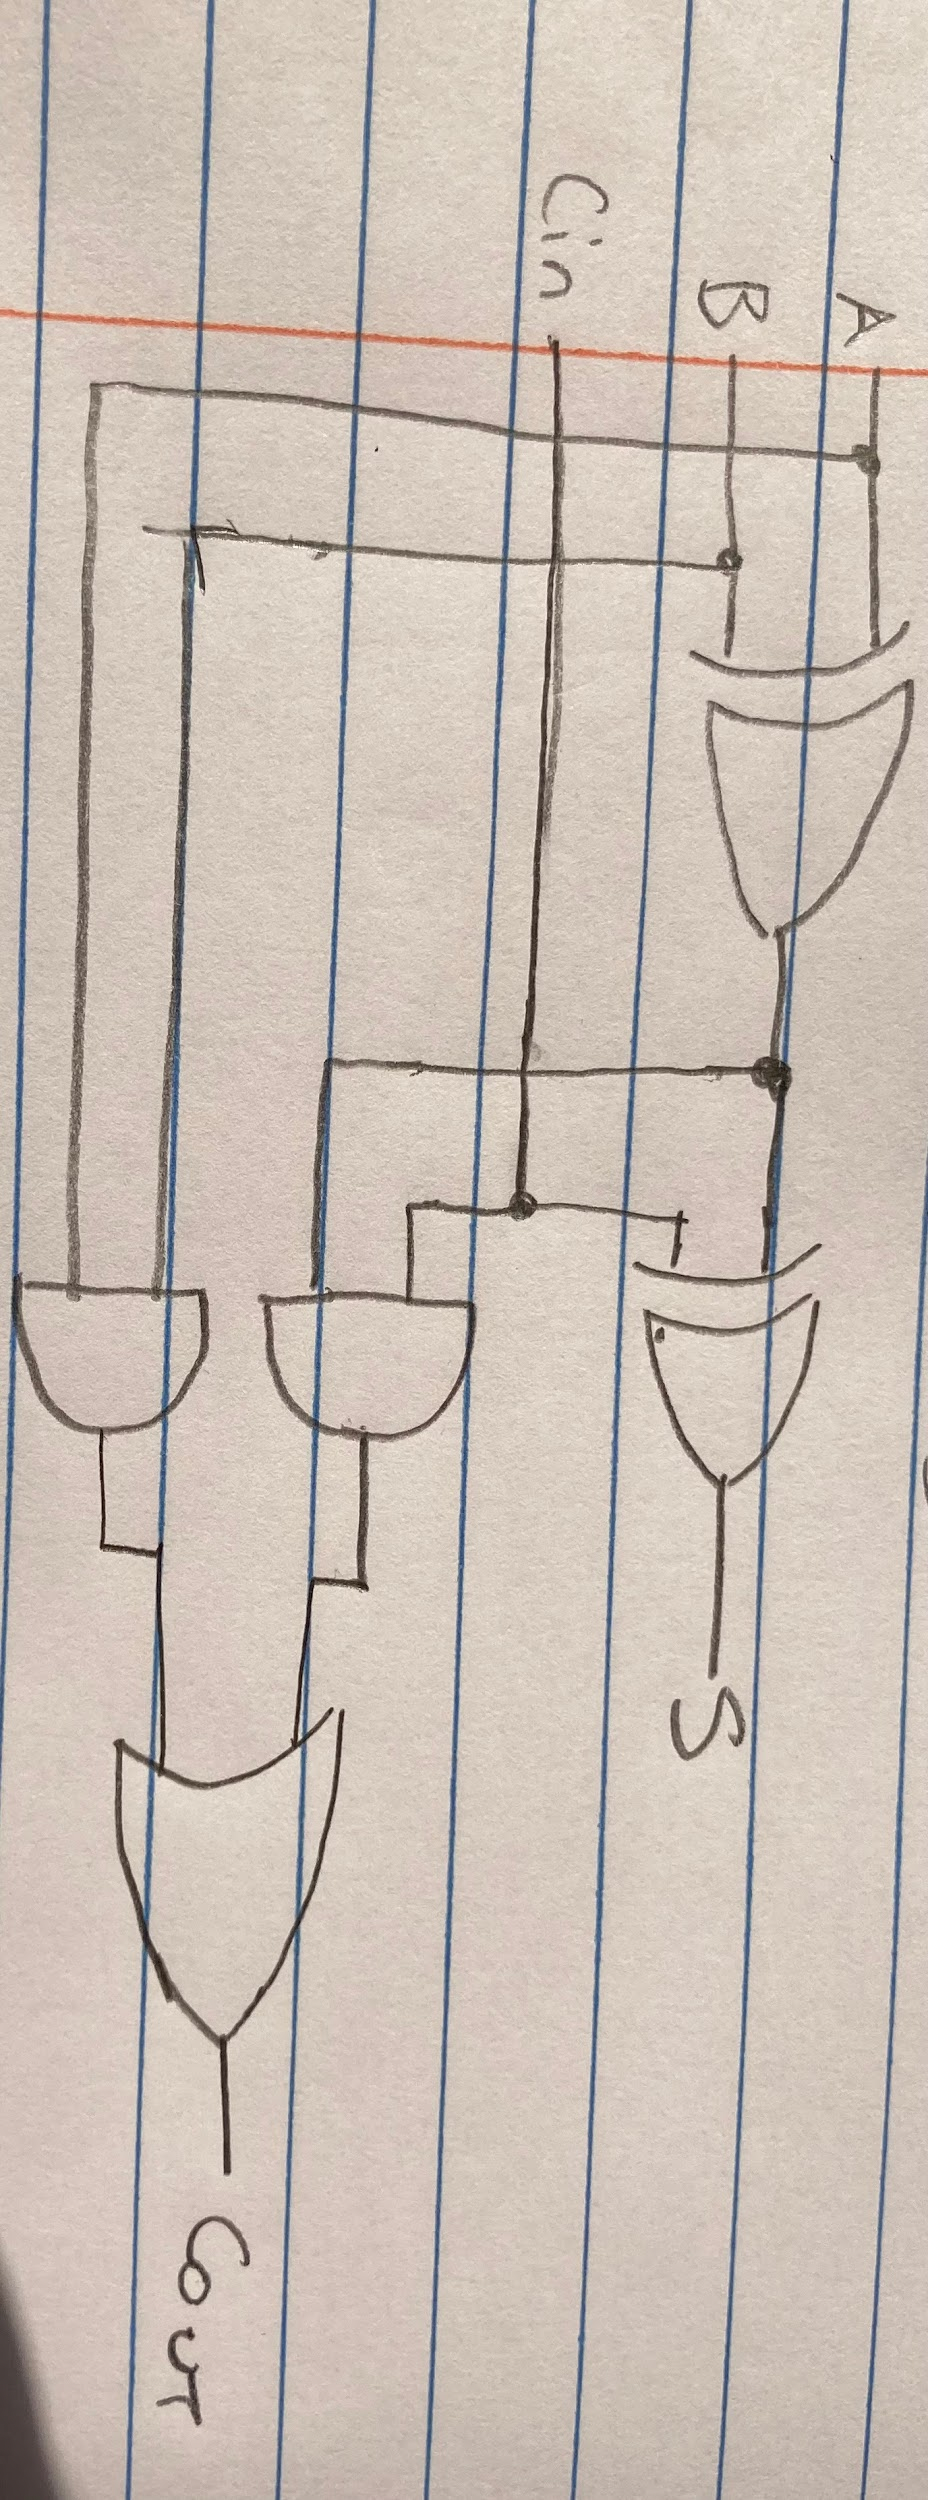 A
B
Cin
S
Cout